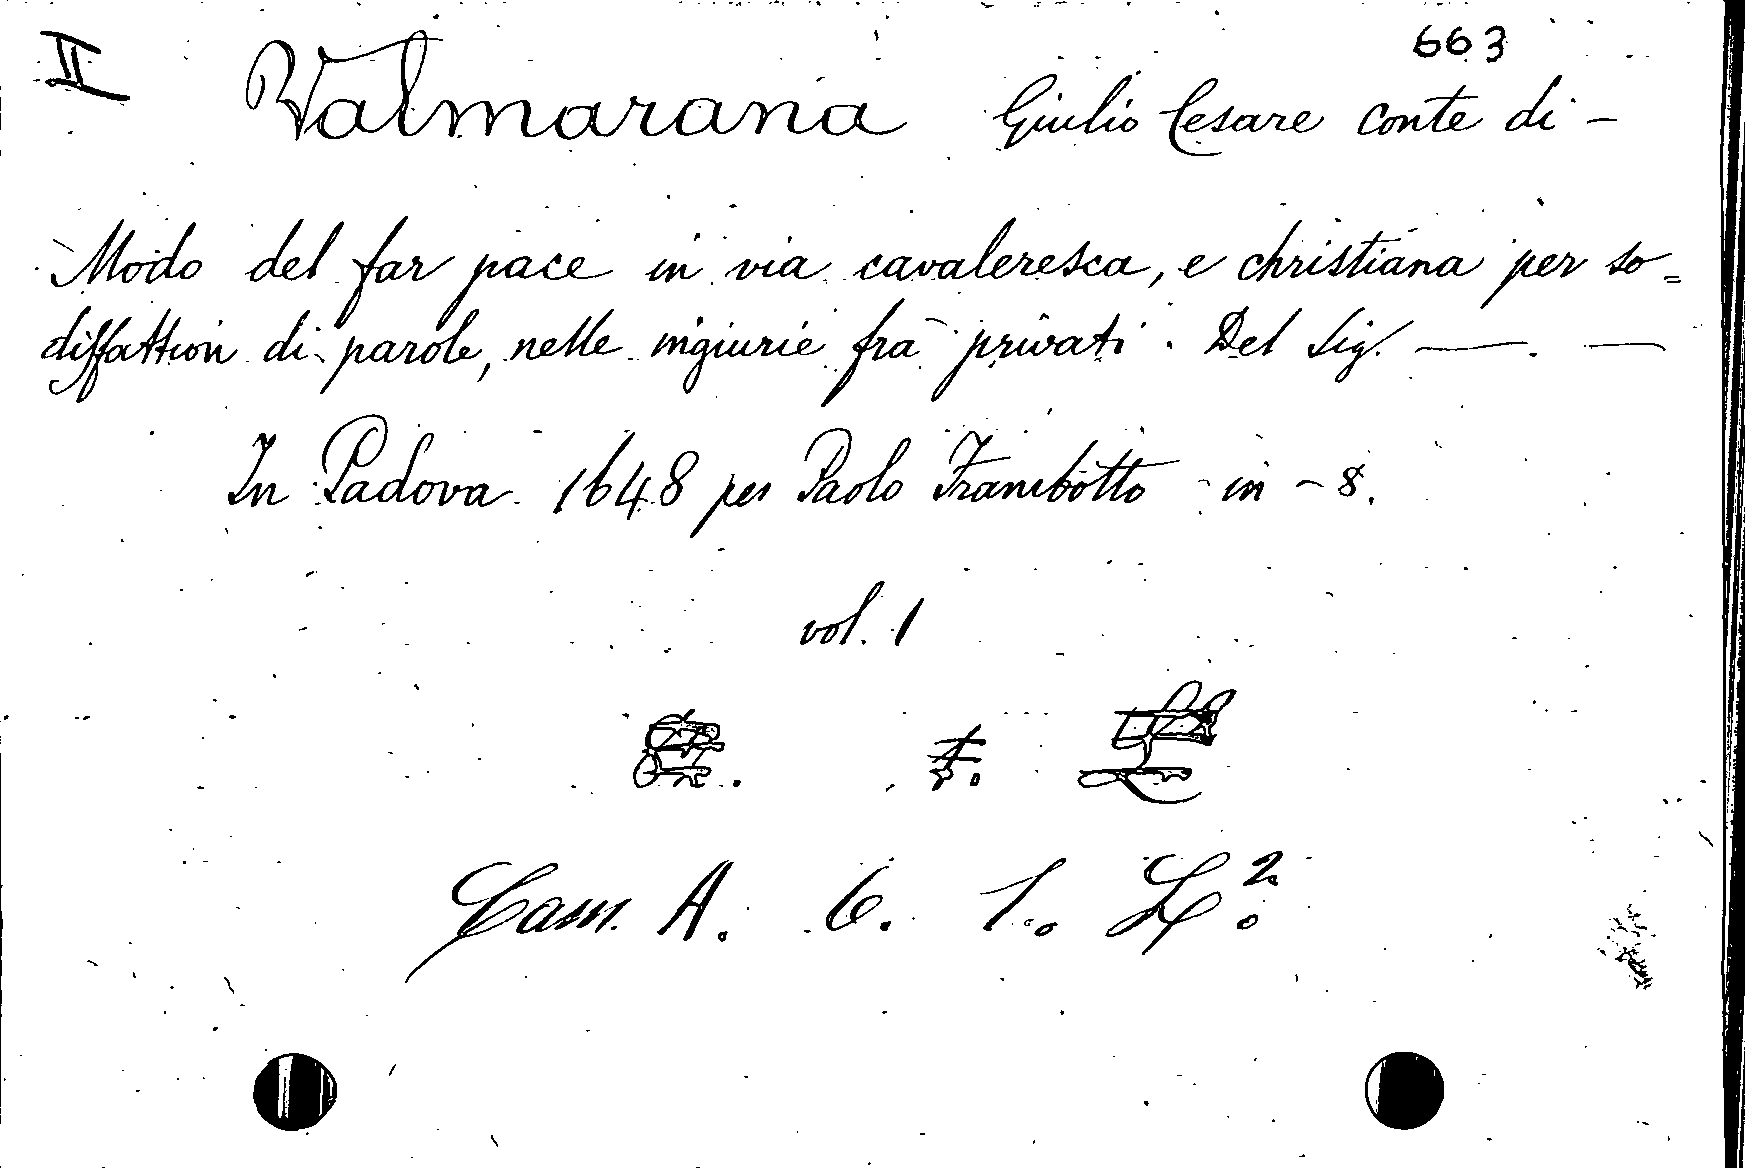 II
663
Valmarana Giulio Cesare conte di -
Modo del far pace in via cavaleresca, e christiana per so=
disfattion di parole, nelle ingiurie frà privati. Del Sig. ——. —
In Padova 1648 per Paolo Frambotto - in - 8.
vol. 1
Cam. A. 6. 1. L.2